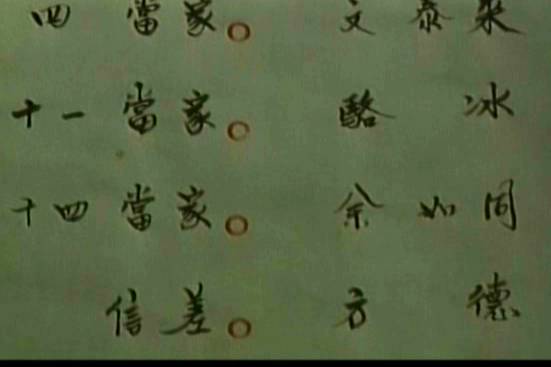 四當家。文泰來
十一當家。駱冰
十四當家。余如同
信差。方德